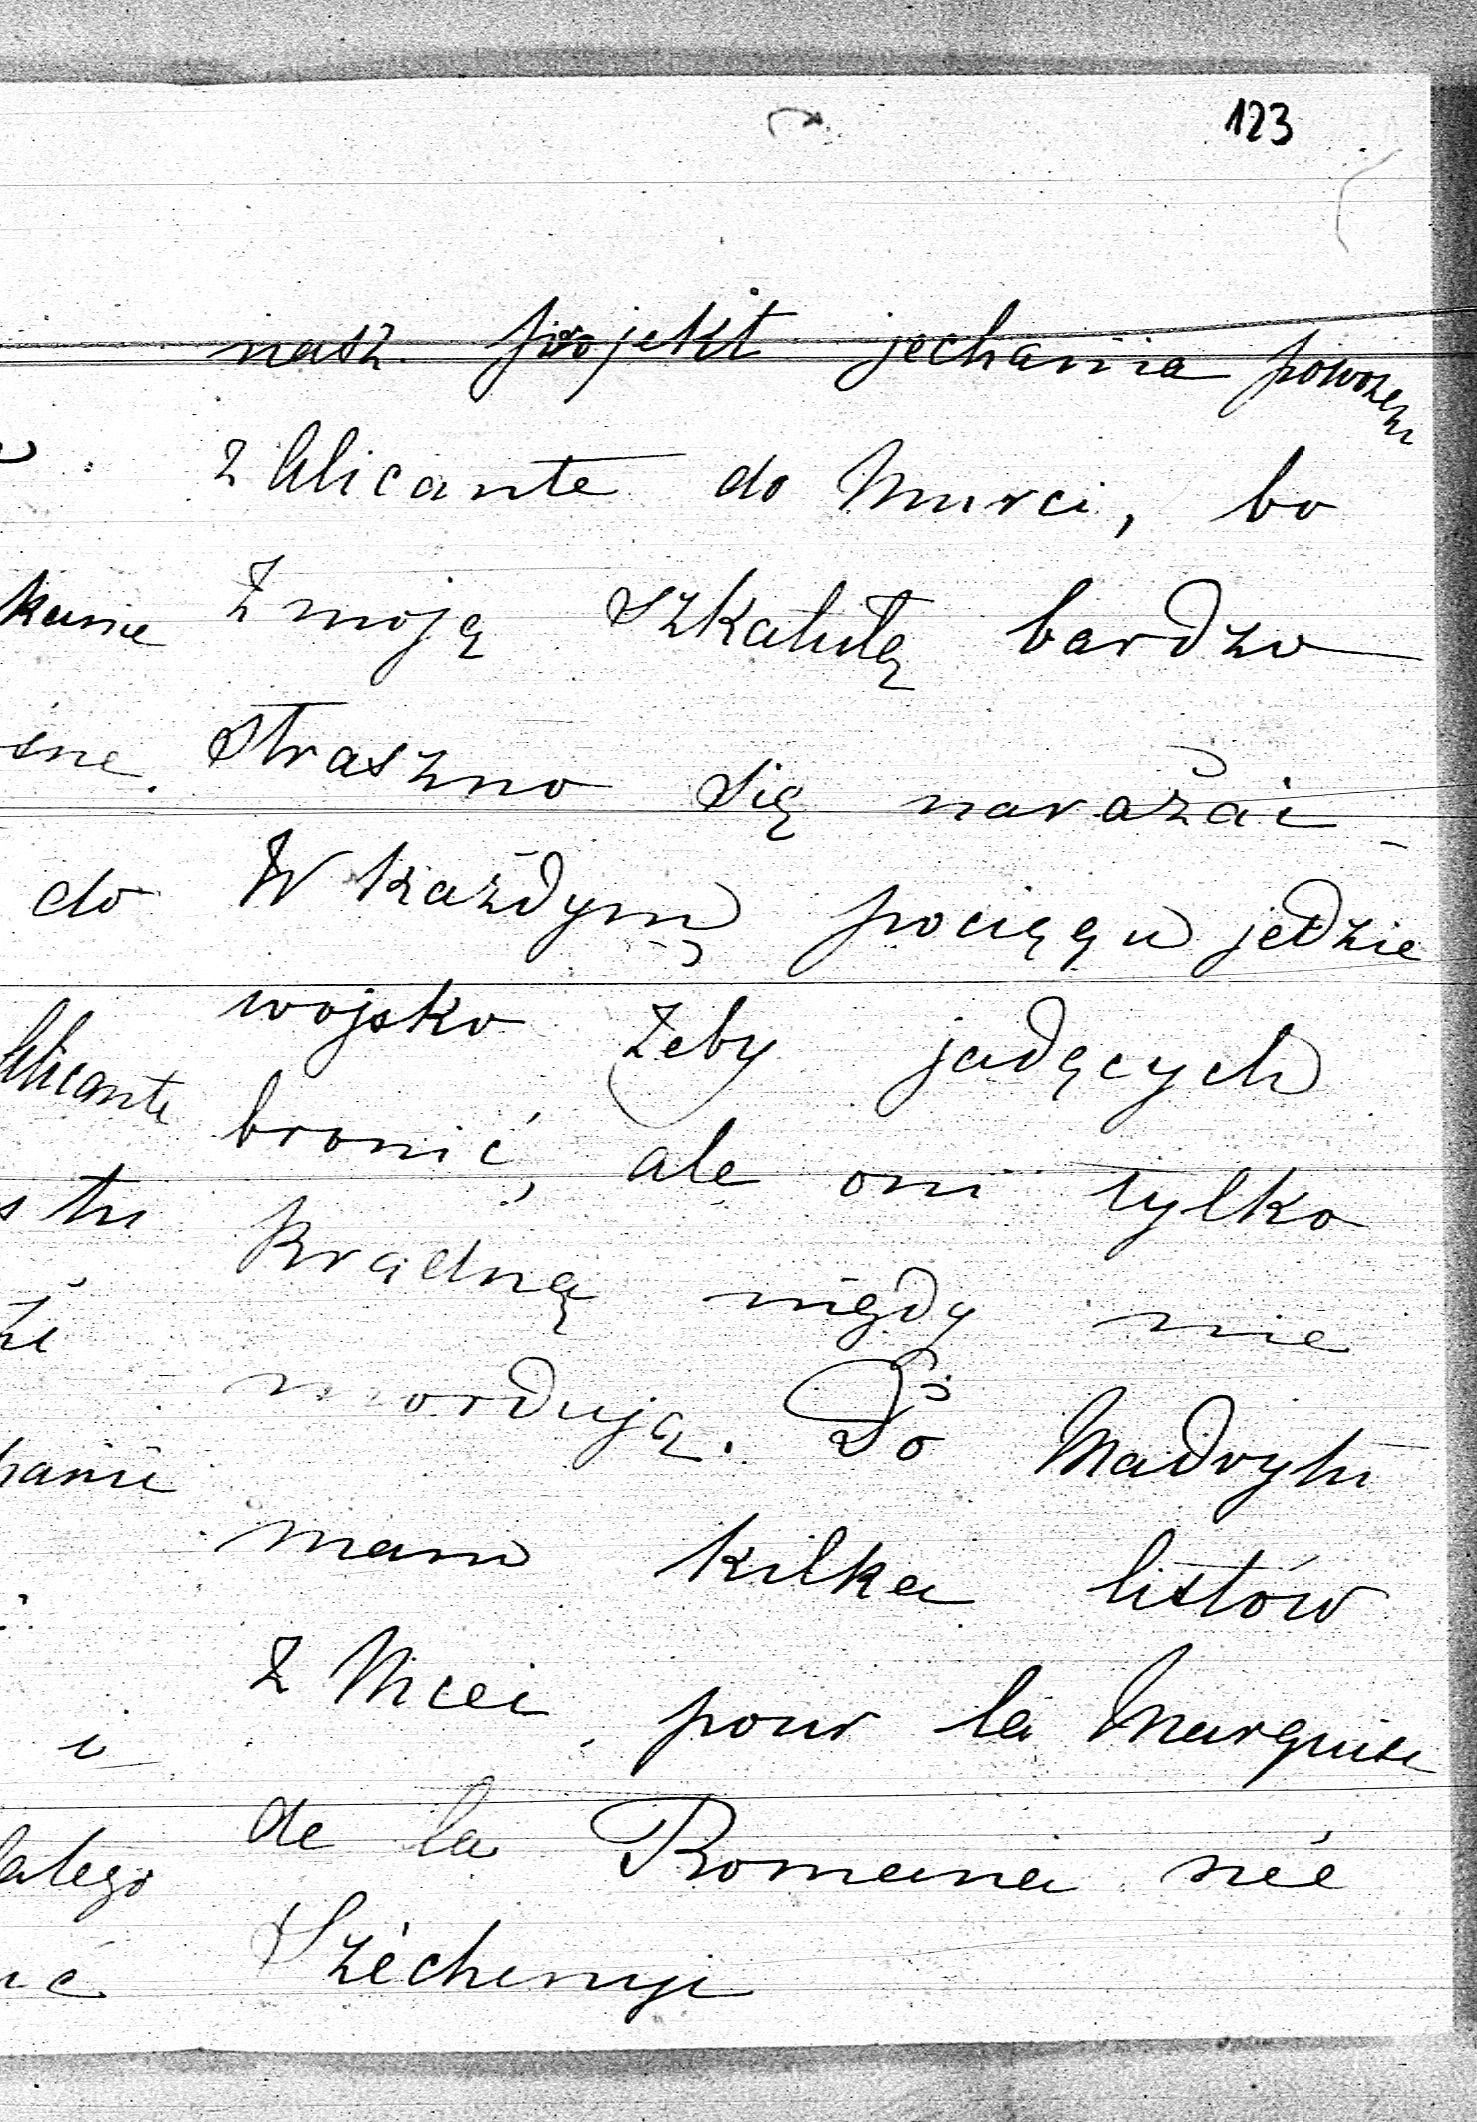 123
nasz projekt jechania powozem
z Alicante do Murci, bo
z moją szkatułą bardzo
straszno się narażać
W każdym pociągu jedzie
wojsko żeby jadących
bronić, ale oni tylko
kradną nigdy nie
mordują. Do Madrytu
mam kilka listów
z Nicei, pour la Marquise
de la Romana née
Széchenyi
do
Alicante
tu
i